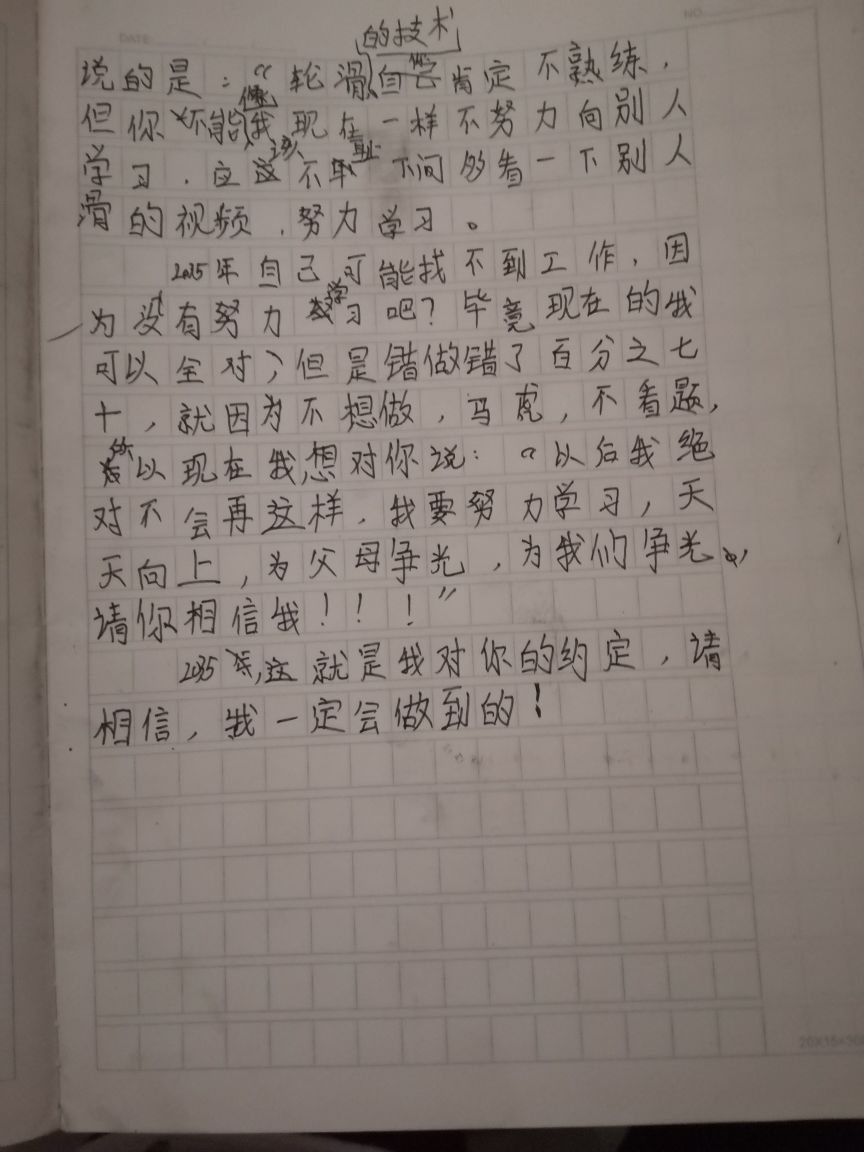 DATE
NO.
的技术
说的是：“轮滑自己肯定不熟练，
但你不能像我现在一样不努力向别人
学习，应该不耻下问多看一下别人
滑的视频，努力学习。
2035年自己可能找不到工作，因
为没有努力学习吧？毕竟现在的我
可以全对，但是错做错了百分之七
十，就因为不想做，马虎，不看题，
所以现在我想对你说：“以后我绝
对不会再这样，我要努力学习，天
天向上，为父母争光，为我们争光，
请你相信我！！！”
2035年，这就是我对你的约定，请
相信，我一定会做到的！